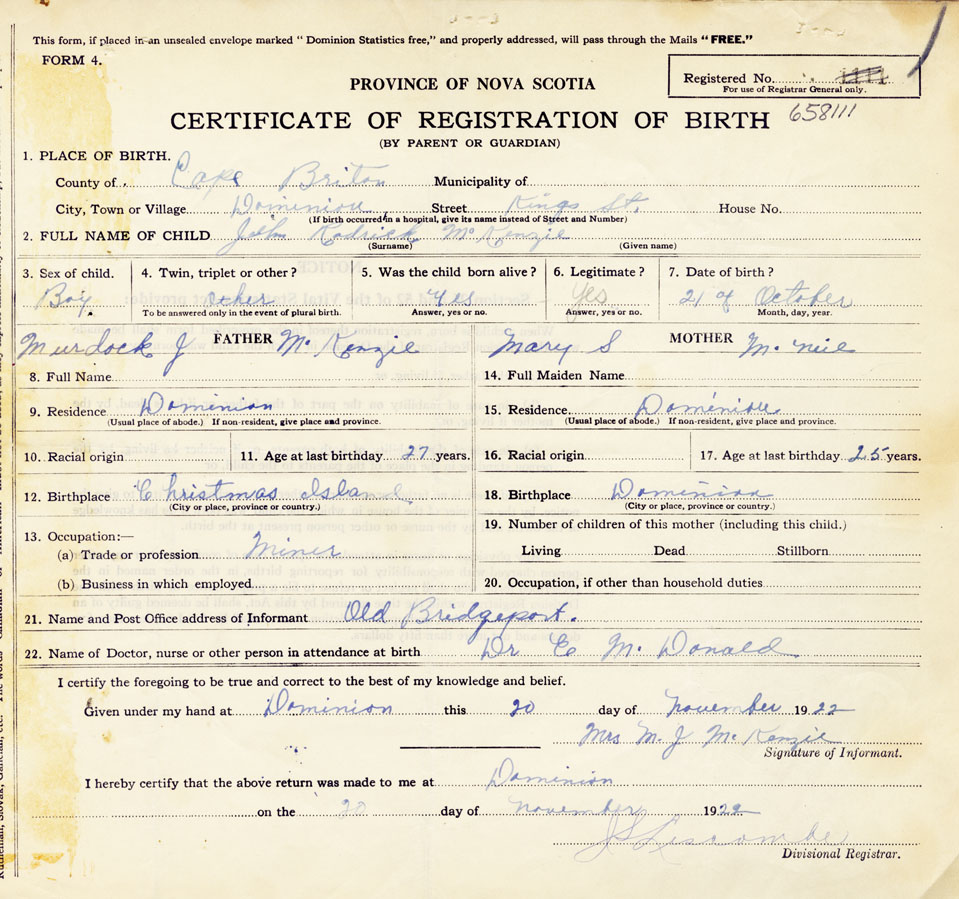 This form, if placed in an unsealed envelope marked "Dominion Statistics free," and properly addressed, will pass through the Mails "FREE."
FORM 4.
Registered No.
For use of Registrar General only.
PROVINCE OF NOVA SCOTIA
658111
CERTIFICATE OF REGISTRATION OF BIRTH
(BY PARENT OR GUARDIAN)
1. PLACE OF BIRTH.
County of Cape Briton Municipality of
City, Town or Village Dominion Street Kings St. House No.
(If birth occurred in a hospital, give its name instead of Street and Number)
2. FULL NAME OF CHILD John Rodrick McKenzie
(Surname) (Given name)
3. Sex of child. 4. Twin, triplet or other? 5. Was the child born alive? 6. Legitimate? 7. Date of birth?
Boy other yes yes 21 of October
To be answered only in the event of plural birth. Answer, yes or no. Answer, yes or no. Month, day, year.
FATHER MOTHER
Murdock J McKenzie Mary S McNeil
8. Full Name 14. Full Maiden Name
9. Residence Dominion 15. Residence. Dominion
(Usual place of abode.) If non-resident, give place and province. (Usual place of abode.) If non-resident, give place and province.
10. Racial origin 11. Age at last birthday 27 years. 16. Racial origin 17. Age at last birthday 25 years.
12. Birthplace Christmas Island 18. Birthplace Dominion
(City or place, province or country.) (City or place, province or country.)
13. Occupation:— 19. Number of children of this mother (including this child.)
(a) Trade or profession Miner Living Dead Stillborn
(b) Business in which employed 20. Occupation, if other than household duties
21. Name and Post Office address of Informant Old Bridgeport.
22. Name of Doctor, nurse or other person in attendance at birth Dr C McDonald
I certify the foregoing to be true and correct to the best of my knowledge and belief.
Given under my hand at Dominion this 20 day of November 1922
Mrs M. J McKenzie
Signature of Informant.
I hereby certify that the above return was made to me at Dominion
on the 20 day of November 1922
Divisional Registrar.